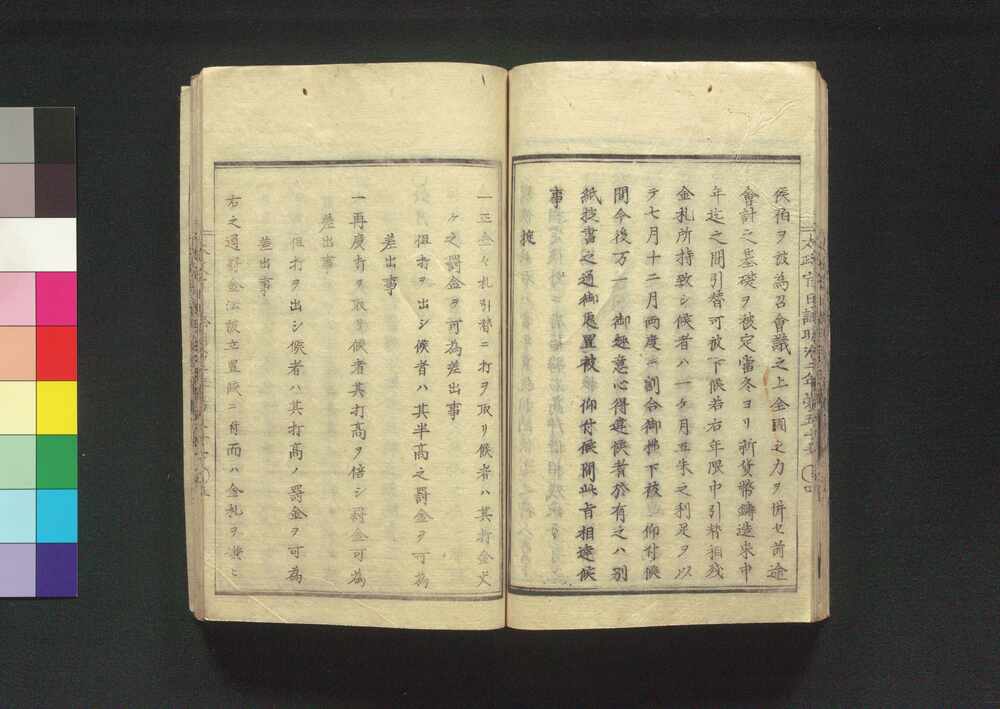 侯伯ヲ被為召會議之上全國之力ヲ併セ前途
會計之基礎ヲ被定當冬ヨリ新貨幣鋳造来申
年迄之間引替可被下候若右年限中引替相残
金札所持致シ候者ハ一ケ月五朱之利足ヲ以
テ七月十二月両度ニ割合御拂下被 仰付候
間今後万一 御趣意心得違候者於有之ハ別
紙掟書之通御處置被 仰付候間此旨相達候
事
掟
一正金ト札引替ニ打ヲ取リ候者ハ其打金丈
ケ之罰金ヲ可為差出事
但打ヲ出シ候者ハ其半高之罰金ヲ可為
差出事
一再度打ヲ取候者其打高ヲ倍シ罰金可為
差出事
但打ヲ出シ候者ハ其打高ノ罰金ヲ可為
差出事
右之通罰金法被立置候ニ付而ハ金札ヲ
太政官日誌明治二年第五十